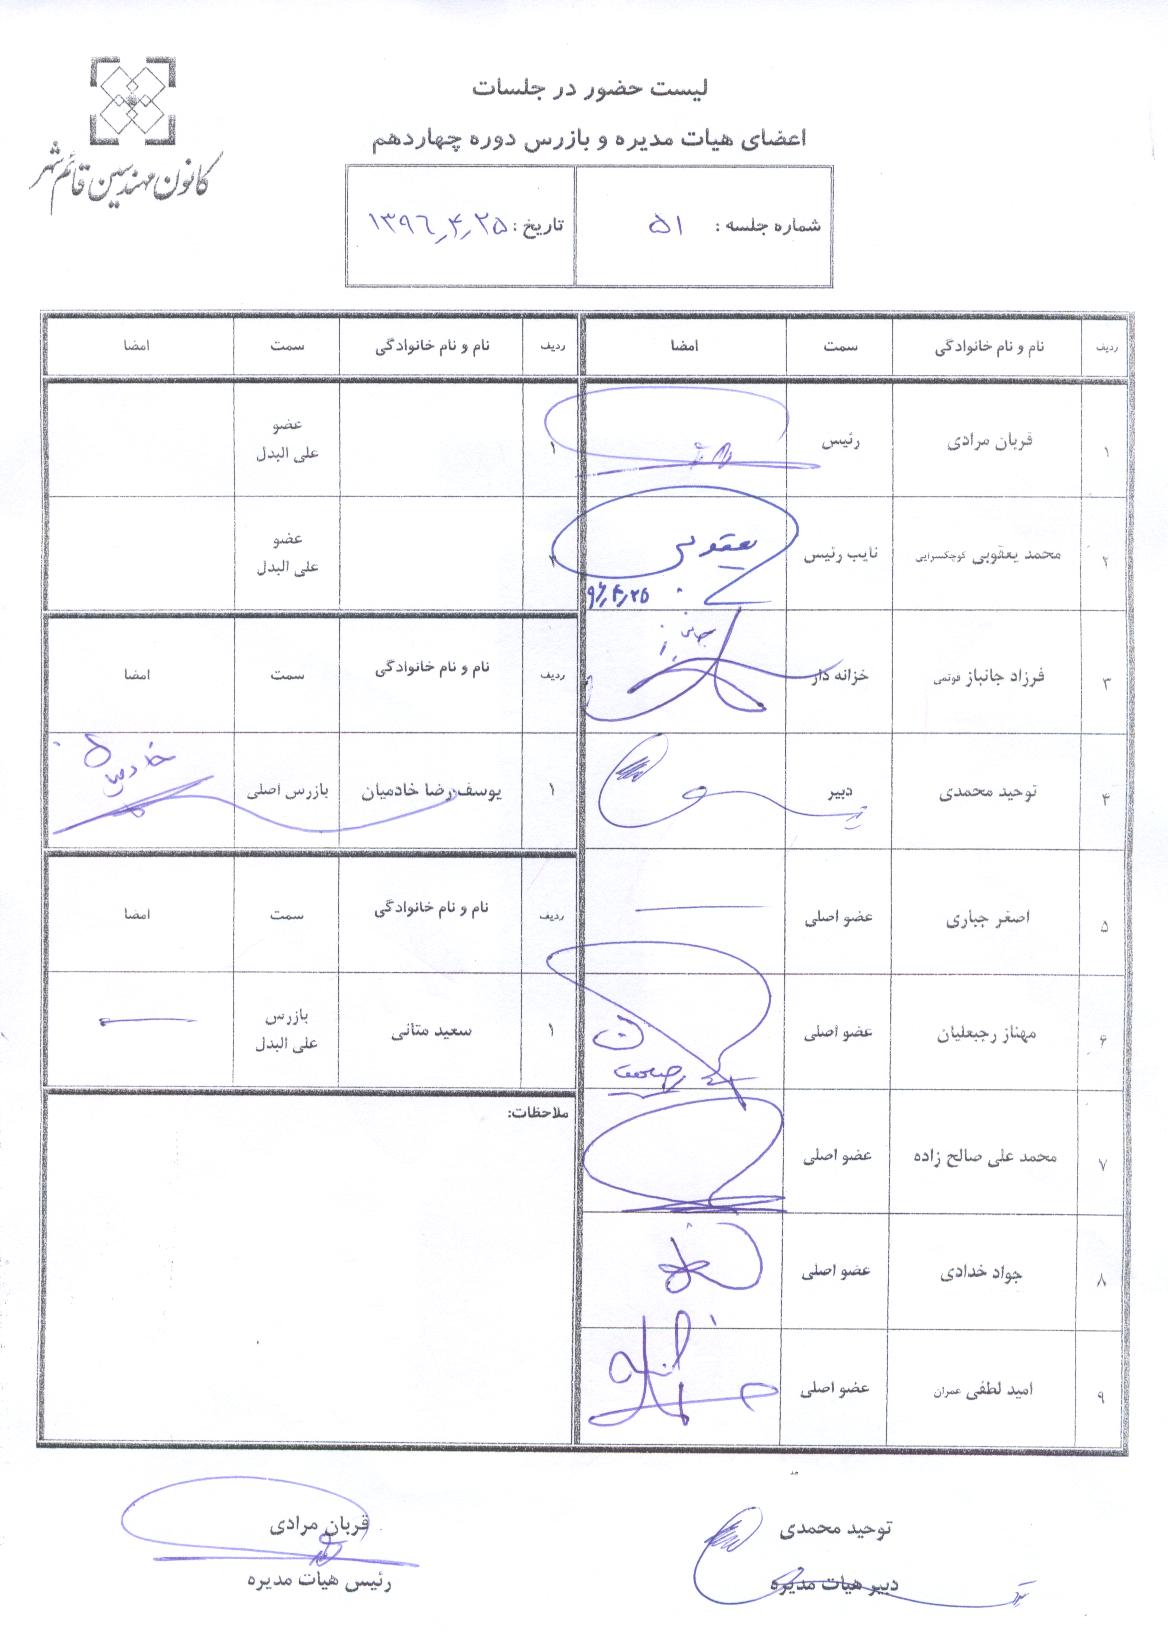 کانون مهندسین قائم شهر
لیست حضور در جلسات
اعضای هیات مدیره و بازرس دوره چهاردهم
شماره جلسه : ۵۱
تاریخ : ۱۳۹۶٫۴٫۲۵
ردیف نام و نام خانوادگی سمت امضا
۱ قربان مرادی رئیس
۲ محمد یعقوبی کوچکسرایی نایب رئیس یعقوبی
۹۶٫۴٫۲۵
۳ فرزاد جانباز فوتمی خزانه دار جانباز
۴ توحید محمدی دبیر
۵ اصغر جباری عضو اصلی
۶ مهناز رجبعلیان عضو اصلی
۷ محمد علی صالح زاده عضو اصلی
۸ جواد خدادی عضو اصلی
۹ امید لطفی عمران عضو اصلی
ردیف نام و نام خانوادگی سمت امضا
۱ عضو
علی البدل
۲ عضو
علی البدل
ردیف نام و نام خانوادگی سمت امضا
۱ یوسف رضا خادمیان بازرس اصلی خادمیان
ردیف نام و نام خانوادگی سمت امضا
۱ سعید متانی بازرس
علی البدل
ملاحظات:
توحید محمدی
دبیر هیات مدیره
قربان مرادی
رئیس هیات مدیره